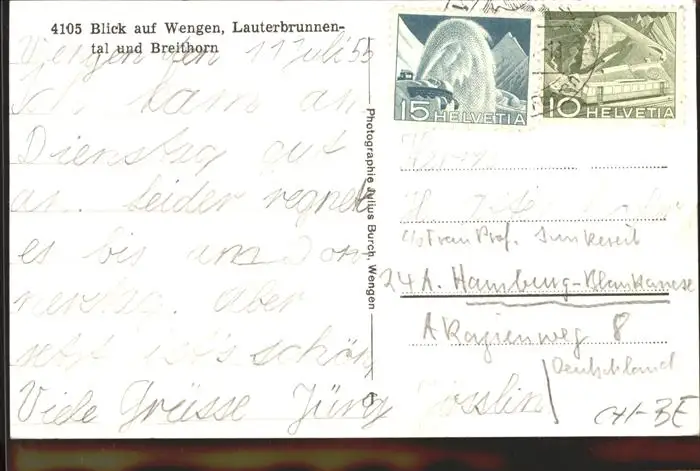 4105 Blick auf Wengen, Lauterbrunnen-
tal und Breithorn
Wengen den 11 Juli 55
Ich kam am
Dienstag gut
an. Leider regnet
es bis am Don
nerstag. Aber
jetzt ist's schön
Viele Grüsse Jürg Jösslin
Photographie Julius Burch, Wengen
15 HELVETIA
10 HELVETIA
c/o Frau Prof.
24A. Hamburg-Blankenese
8
Deutschland
CH-BE